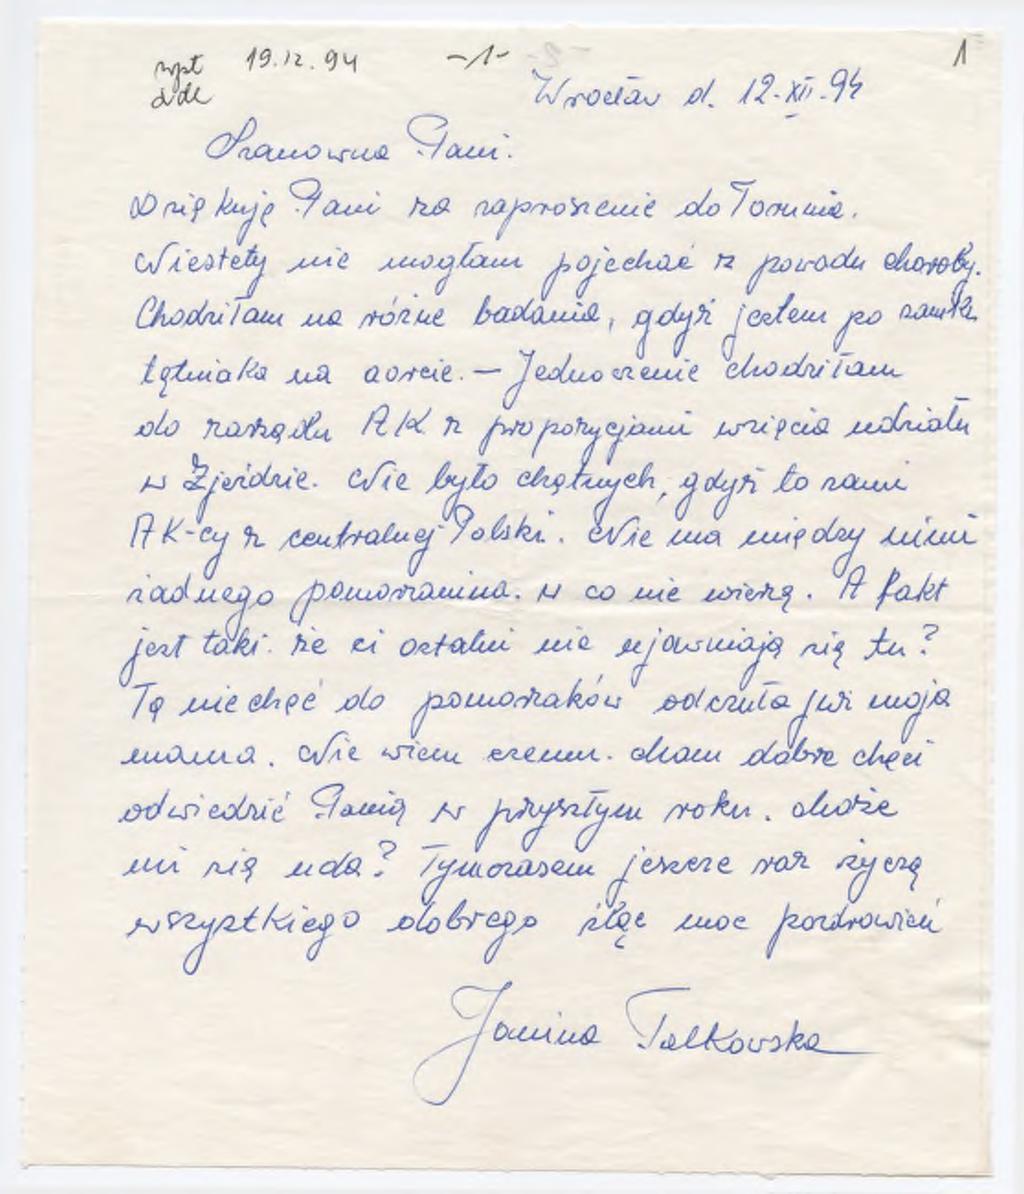 wpł 19.12.94 -1- 1
Wrocław d. 12.XII.94
Szanowna Pani.
Dziękuję Pani za zaproszenie do Torunia.
Niestety nie mogłam pojechać z powodu choroby.
Chodziłam na różne badania, gdyż jestem po
tętniaka na aorcie. – Jednocześnie chodziłam
do zarządu AK z propozycjami wzięcia udziału
w Zjeździe. Nie było chętnych, gdyż to sami
AK-cy z centralnej Polski. Nie ma między nimi
żadnego pomorzanina. w co nie wierzę. A fakt
jest taki. że ci ostatni nie ujawniają się tu?
Tę niechęć do pomorzaków odczuła już moja
mama. Nie wiem czemu. Mam dobre chęci
odwiedzić Panią w przyszłym roku. Może
mi się uda? Tymczasem jeszcze raz życzę
wszystkiego dobrego ślę moc pozdrowień
Janina Talkowska